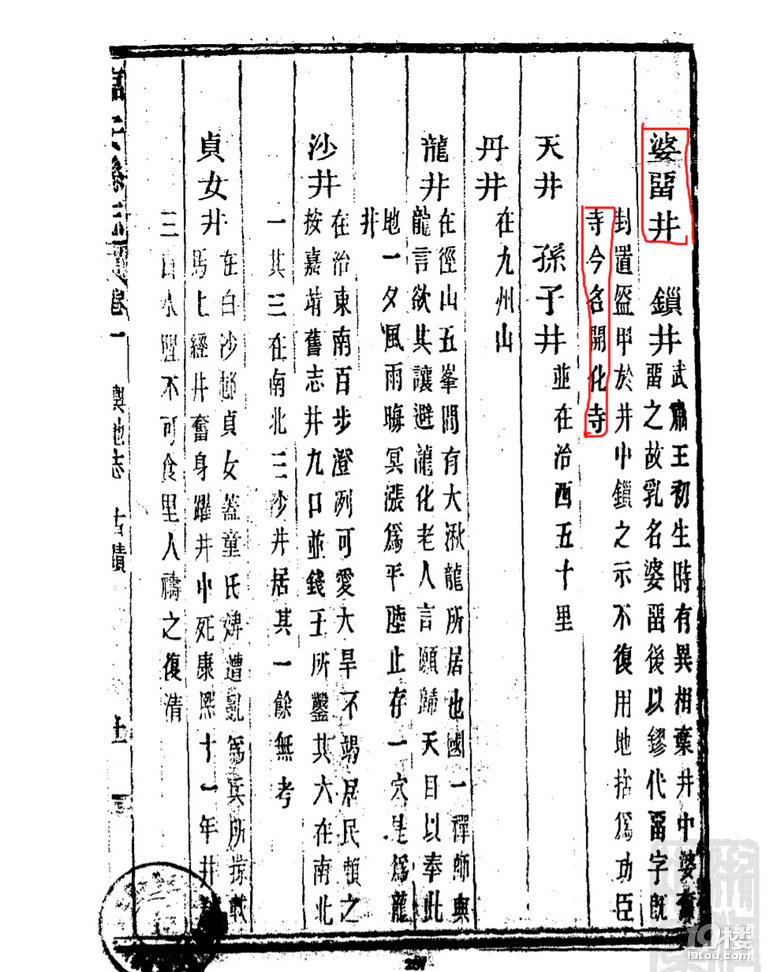 婆畱井 鎖井 武肅王初生時有異相棄井中婆奮
畱之故乳名婆畱後以鏐代畱字既
封置盔甲於井中鎖之示不復用地捨爲功臣
寺今名開化寺
天井 孫子井 並在治西五十里
丹井 在九州山
龍井 在徑山五峯間有大湫龍所居也國一禪師與
龍言欲其讓避龍化老人言願歸天目以奉此
地一夕風雨晦冥漲爲平陸止存一穴是爲龍
井
沙井 在治東南百步澄冽可愛大旱不竭居民頼之
按嘉靖舊志井九口並錢王所鑿其六在南北
一其三在南北三沙井居其一餘無考
貞女井 在白沙邨貞女蓋童氏婢遭亂爲兵所掠載
馬上經井奮身躍井中死康熙十一年井
三日水腥不可食里人禱之復清
卷一 輿地志 古蹟
19樓
19lou.com